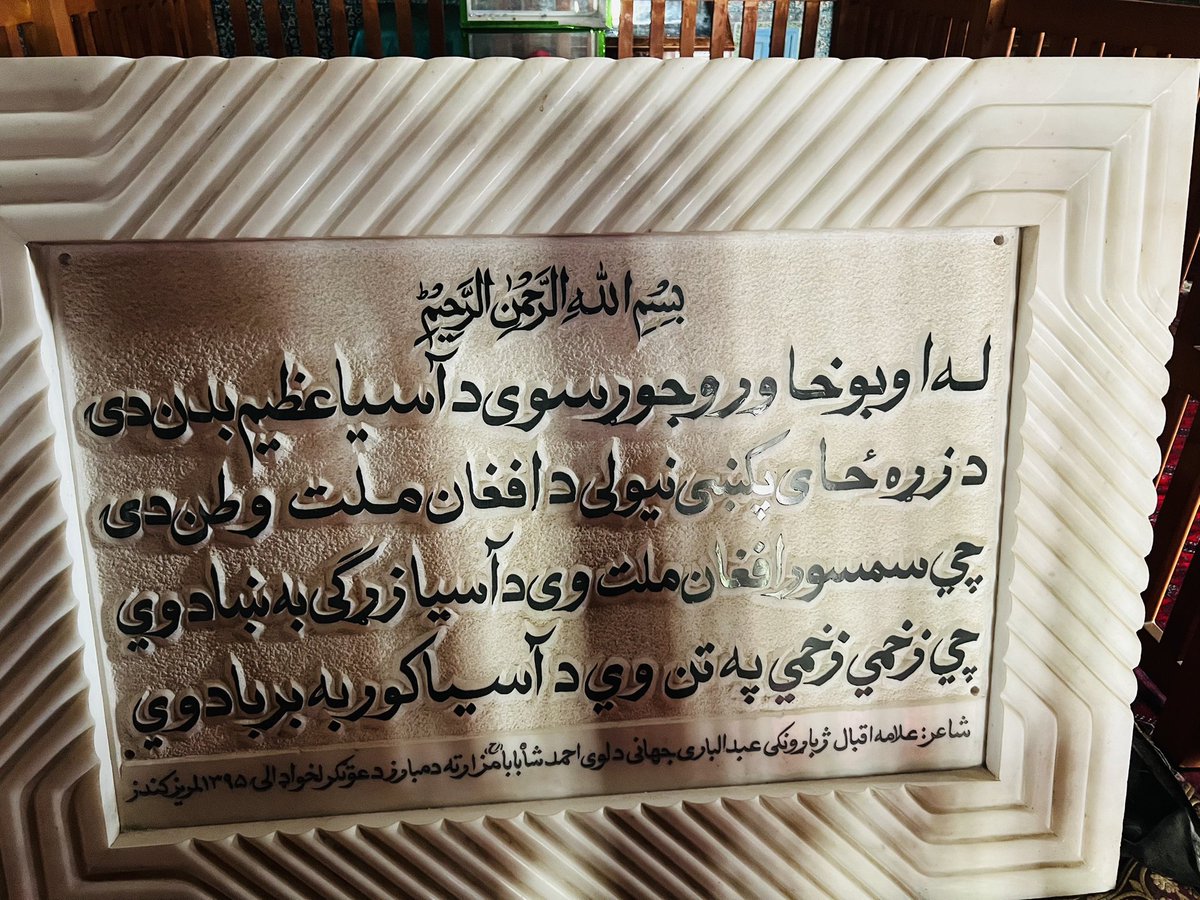 بِسْمِ اللهِ الرَّحْمٰنِ الرَّحِيْمِ
له اوبو خاورو جوړ سوی د آسیا عظیم بدن دی
د زړه ځای پکښی نیولی د افغان ملت وطن دی
چي سمسور افغان ملت وی د آسیا زړگی به ښاد وي
چي زخمي زخمي په تن وي د آسیا کور به برباد وي
شاعر: علامه اقبال ژباړونکی عبدالباری جهانی د لوی احمد شاه بابا مزار ته د مبارز د عوتکر لخوا ډالی ۱۳۹۵ لمریز کندز